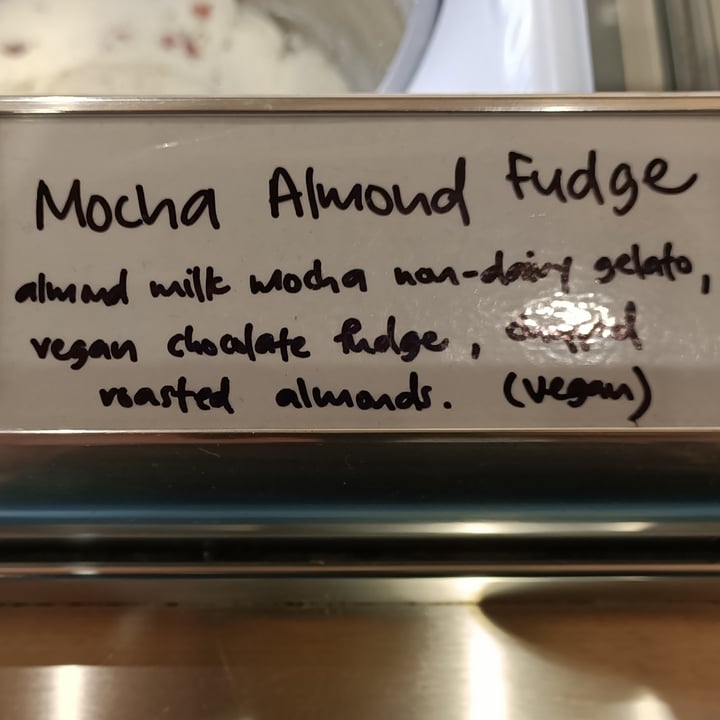 Mocha Almond Fudge
almond milk mocha non-dairy gelato,
vegan chocolate fudge,
roasted almonds. (vegan)